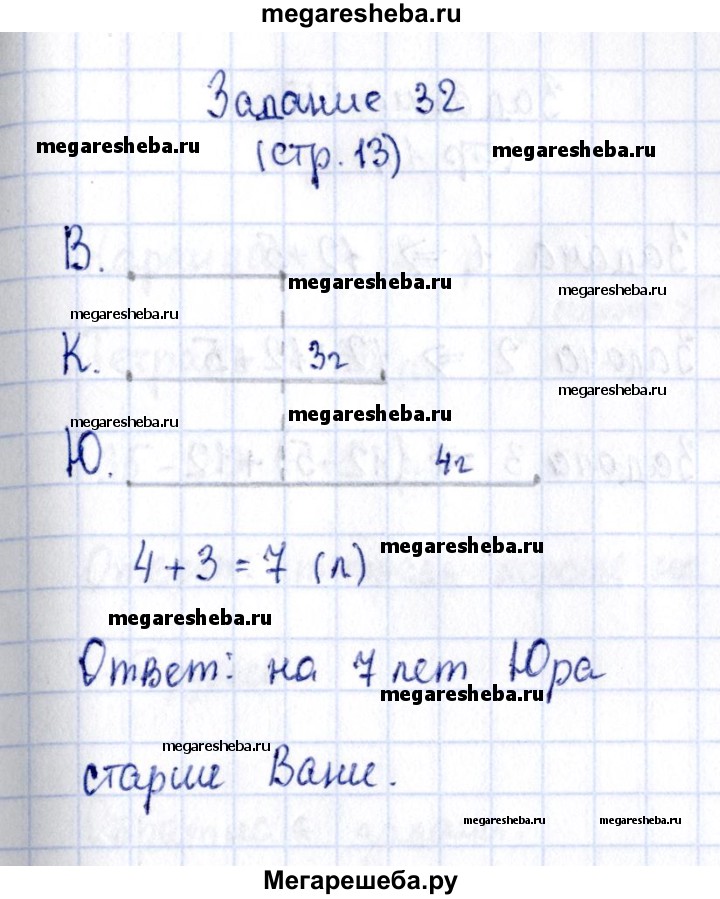 megaresheba.ru
Задание 32
megaresheba.ru (стр. 13) megaresheba.ru
В.
megaresheba.ru megaresheba.ru
megaresheba.ru
К. 3г
megaresheba.ru
megaresheba.ru megaresheba.ru
Ю. 4г
4 + 3 = 7 (л) megaresheba.ru
megaresheba.ru
Ответ: на 7 лет Юра
megaresheba.ru
megaresheba.ru
старше Вани.
megaresheba.ru megaresheba.ru
Мегарешеба.ру